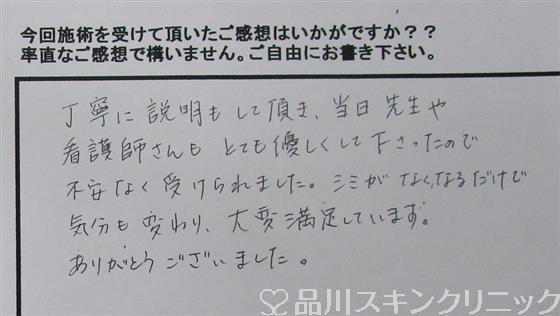 今回施術を受けて頂いたご感想はいかがですか？？
率直なご感想で構いません。ご自由にお書き下さい。
丁寧に説明もして頂き、当日先生や
看護師さんも とても優しくして下さったので
不安なく受けられました。シミがなくなるだけで
気分も変わり、大変満足しています。
ありがとうございました。
品川スキンクリニック